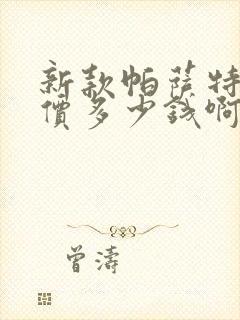 新款帕萨特
價多少錢啊
曾濤